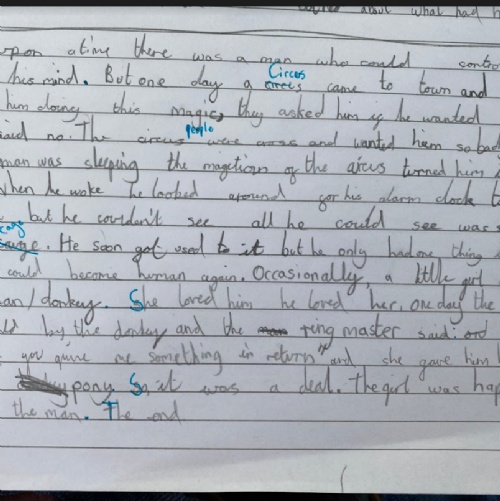 about what had h
upon a time there was a man who could contro
his mind. But one day a Circus came to town and
him doing this magic, they asked him if he wanted
said no. The circus people were and wanted him so bad
man was sleeping the magetion of the circus turned him
when he woke he looked around for his alarm clock to
but he couldn't see all he could see was s
He soon got used to it but he only had one thing
could become human again. Occasionally, a little girl
man/donkey. She loved him he loved her, one day the
by the donkey and the ring master said:
you give me something in return" and she gave him
pony So, it was a deal. The girl was hap
the man. The end